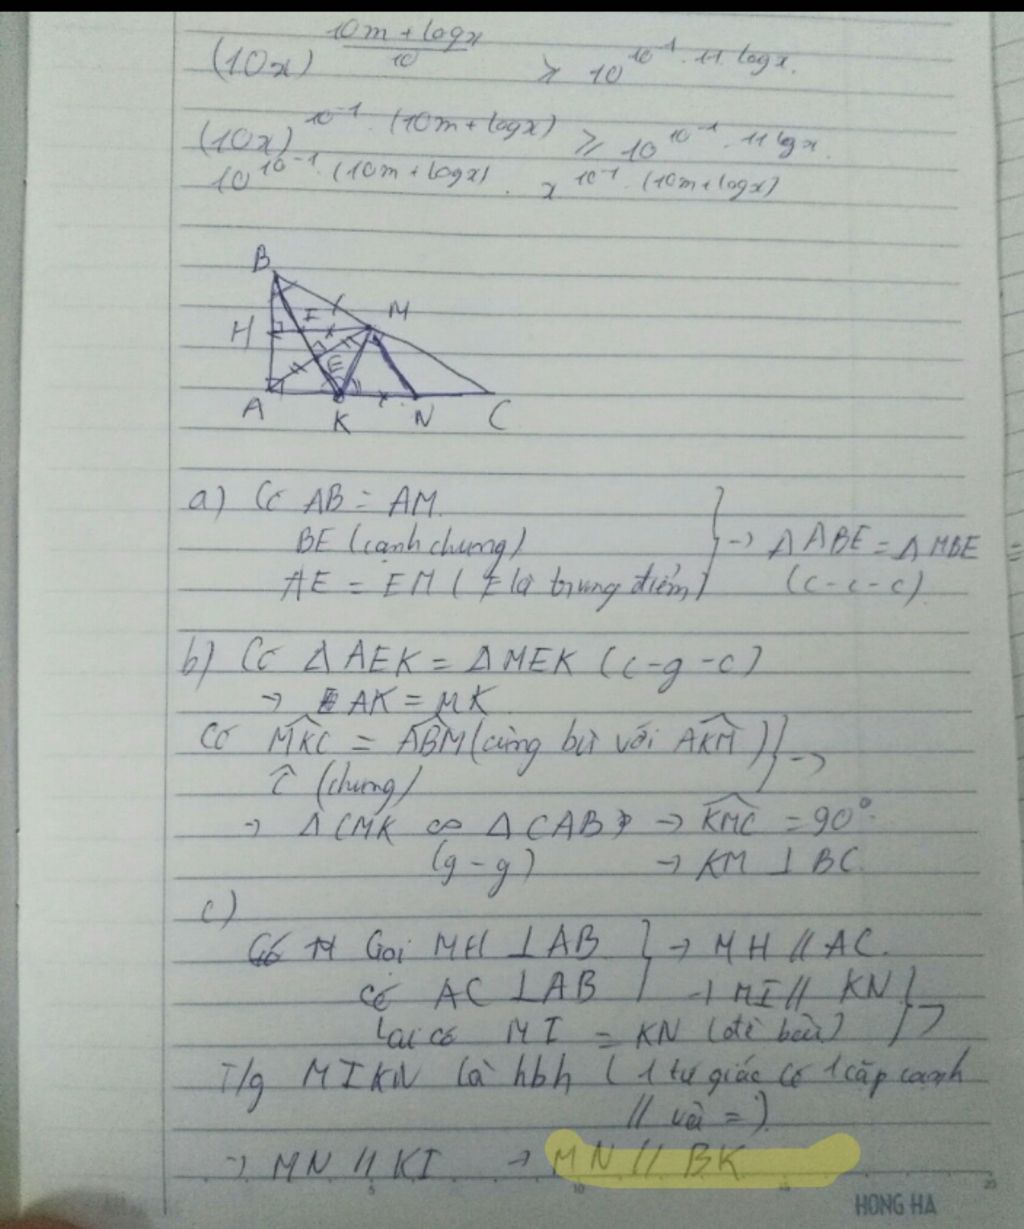 (10x)^{\frac{10m + logx}{10}} ≥ 10^{10^{-1} . 11 logx.}
(10x)^{10^{-1} . (10m + logx)} ≥ 10^{10^{-1} . 11 logx.}
10^{10^{-1} . (10m + logx)} . x^{10^{-1} . (10m + logx)}
B
I
M
H
E
A
K
N
C
a) Có AB = AM.
BE (cạnh chung)
AE = EM (E là trung điểm)
} → Δ ABE = Δ MBE
(c-c-c)
b) Có Δ AEK = Δ MEK (c-g-c)
→ AK = MK
Có \widehat{MKC} = \widehat{ABM} (cùng bù với \widehat{AKM}) } →
\widehat{C} (chung)
→ Δ CMK ∽ Δ CAB → \widehat{KMC} = 90°
(g-g) → KM ⊥ BC.
c)
Gọi MH ⊥ AB } → MH // AC.
có AC ⊥ AB → MI // KN }
Lại có MI = KN (đề bài) } →
T/g MIKN là hbh (1 tứ giác có 1 cặp cạnh
// và =)
→ MN // KI → MN // BK
5 10 15 20
HONG HA